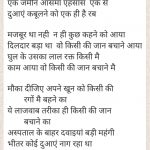 एक जमीन आसमां एहसास एक से
दुआएं कबूलने को एक ही है रब
मजबूर था नही न ही कुछ कहने को आया
दिलदार बड़ा था वो किसी की जान बचाने आया
घुल के उसका लाल रक्त किसी मै
काम आया वो किसी की जान बचाने मै
मौका दीजिए अपने खून को किसी की
रगों मै बहने का
ये लाजवाब तरीका ही किसी की जान
बचाने का
अस्पताल के बाहर दवाइयां बड़ी महंगी
भीतर कोई दुआएं नाग रहा था